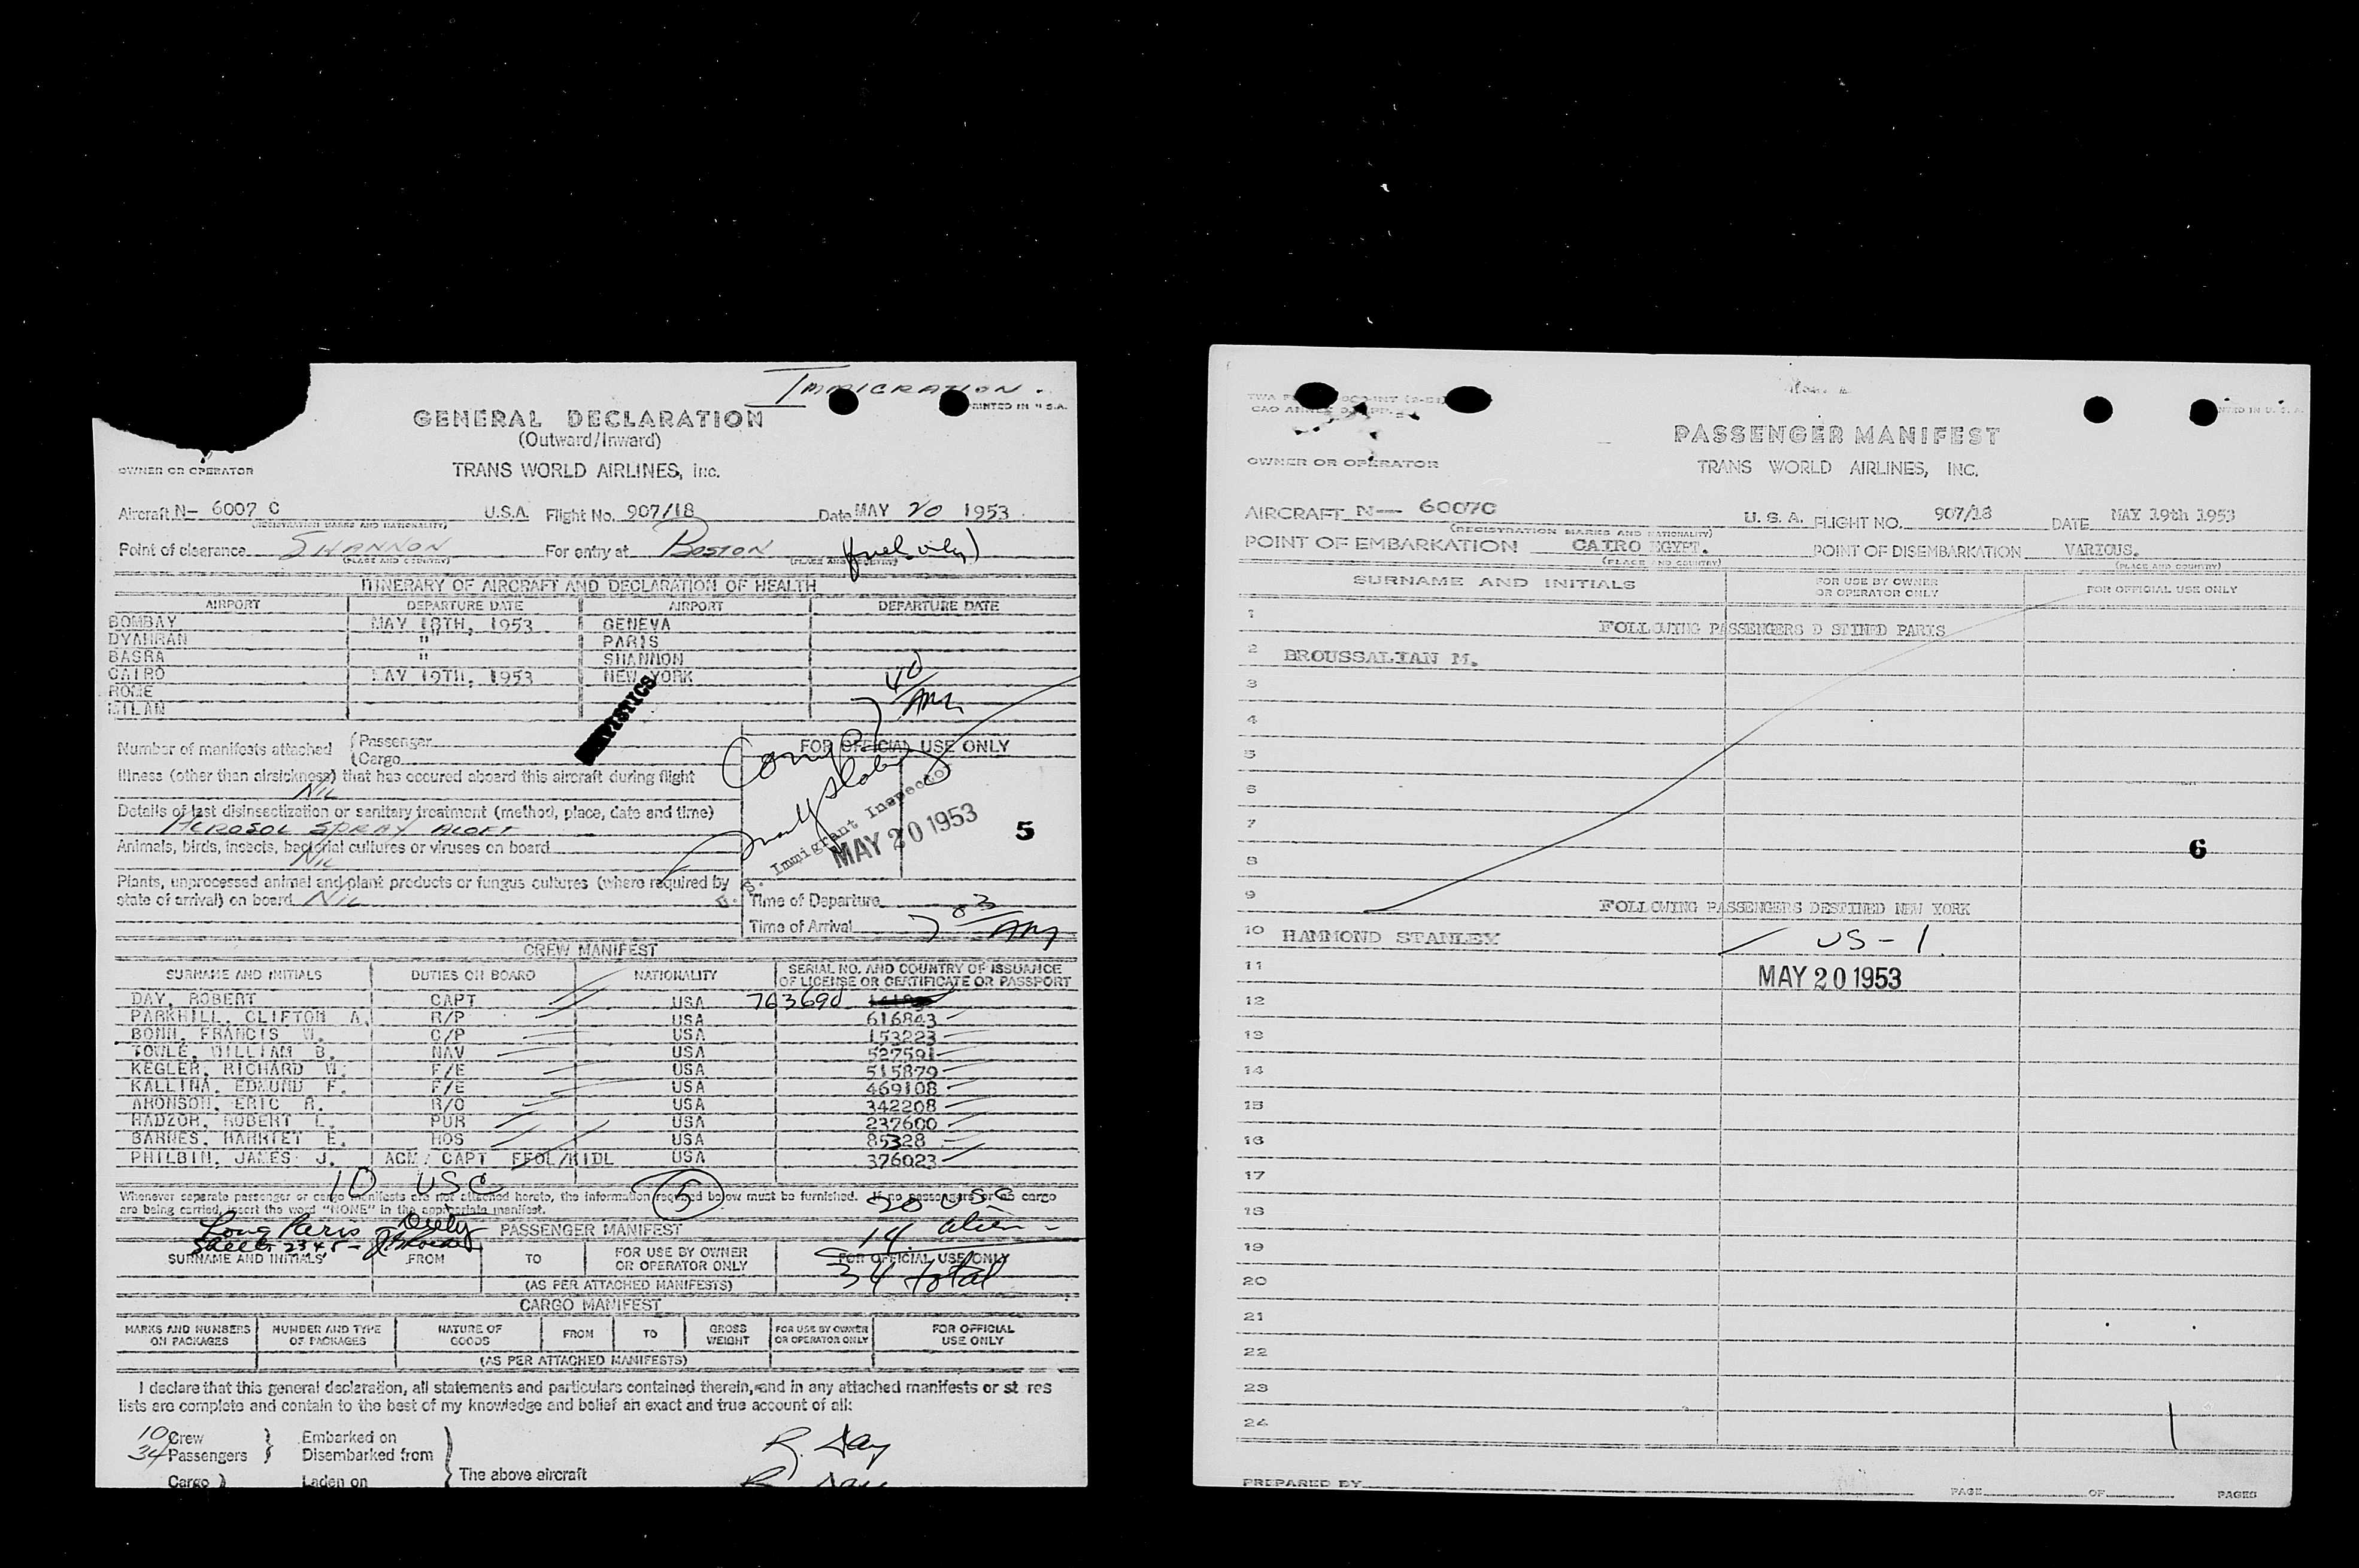 IMMIGRATION.
PRINTED IN U.S.A.
GENERAL DECLARATION
(Outward/Inward)
OWNER OR OPERATOR
TRANS WORLD AIRLINES, Inc.
Aircraft N- 6007 C U.S.A. Flight No. 907/18 Date MAY 20 1953
(REGISTRATION MARKS AND NATIONALITY)
Point of clearance SHANNON For entry at BOSTON (fuel only)
(PLACE AND COUNTRY) (PLACE AND COUNTRY)
ITINERARY OF AIRCRAFT AND DECLARATION OF HEALTH
AIRPORT DEPARTURE DATE AIRPORT DEPARTURE DATE
BOMBAY MAY 18TH, 1953 GENEVA
DYAHRAN " PARIS
BASRA " SHANNON
CAIRO MAY 19TH, 1953 NEW YORK
ROME
MILAN
7 40 AM
Number of manifests attached (Passenger
(Cargo
FOR OFFICIAL USE ONLY
Illness (other than airsickness) that has occured aboard this aircraft during flight
NIL
Details of last disinsectization or sanitary treatment (method, place, date and time)
AEROSOL SPRAY ALOFT
Animals, birds, insects, bacterial cultures or viruses on board
NIL
Plants, unprocessed animal and plant products or fungus cultures (where required by
state of arrival) on board NIL
U.S. Immigrant Inspector
MAY 20 1953
5
Time of Departure
Time of Arrival 7 03 AM
CREW MANIFEST
SURNAME AND INITIALS DUTIES ON BOARD NATIONALITY SERIAL NO. AND COUNTRY OF ISSUANCE
OF LICENSE OR CERTIFICATE OR PASSPORT
DAY, ROBERT CAPT USA 763690
PARKHILL, CLIFTON A. R/P USA 616843
BONN, FRANCIS W. C/P USA 153223
TOWLE, WILLIAM B. NAV USA 527591
KEGLER, RICHARD W. F/E USA 515879
KALLINA, EDMUND F. F/E USA 469108
ARONSON, ERIC R. R/O USA 342208
HADZOR, ROBERT L. PUR USA 237600
BARNES, HARRIET E. HOS USA 85328
PHILBIN, JAMES J. ACM/ CAPT FFOL/KIDL USA 376023
10 USC
5
Whenever separate passenger or cargo manifests are not attached hereto, the information required below must be furnished. If no passengers or no cargo
are being carried, insert the word "NONE" in the appropriate manifest.
20 USC
14 alien
34 total
Long Paris Only
Sheets 2345-
PASSENGER MANIFEST
SURNAME AND INITIALS FROM TO FOR USE BY OWNER
OR OPERATOR ONLY FOR OFFICIAL USE ONLY
(AS PER ATTACHED MANIFESTS)
CARGO MANIFEST
MARKS AND NUMBERS
ON PACKAGES NUMBER AND TYPE
OF PACKAGES NATURE OF
GOODS FROM TO GROSS
WEIGHT FOR USE BY OWNER
OR OPERATOR ONLY FOR OFFICIAL
USE ONLY
(AS PER ATTACHED MANIFESTS)
I declare that this general declaration, all statements and particulars contained therein, and in any attached manifests or st res
lists are complete and contain to the best of my knowledge and belief an exact and true account of all:
10 Crew } Embarked on
34 Passengers } Disembarked from
Cargo } Laden on } The above aircraft
R. Day
R. Day
PRINTED IN U.S.A.
PASSENGER MANIFEST
OWNER OR OPERATOR
TRANS WORLD AIRLINES, INC.
AIRCRAFT N— 6007C U. S. A. FLIGHT NO. 907/18 DATE MAY 19th 1953
(REGISTRATION MARKS AND NATIONALITY)
POINT OF EMBARKATION CAIRO EGYPT. POINT OF DISEMBARKATION VARIOUS.
(PLACE AND COUNTRY) (PLACE AND COUNTRY)
SURNAME AND INITIALS FOR USE BY OWNER
OR OPERATOR ONLY FOR OFFICIAL USE ONLY
1 FOLLOWING PASSENGERS D STINED PARIS
2 BROUSSALIAN M.
3
4
5
6
7
8
6
9 FOLLOWING PASSENGERS DESTINED NEW YORK
10 HAMMOND STANLEY US-1
11 MAY 20 1953
12
13
14
15
16
17
18
19
20
21
22
23
24
PREPARED BY
PAGE OF PAGES